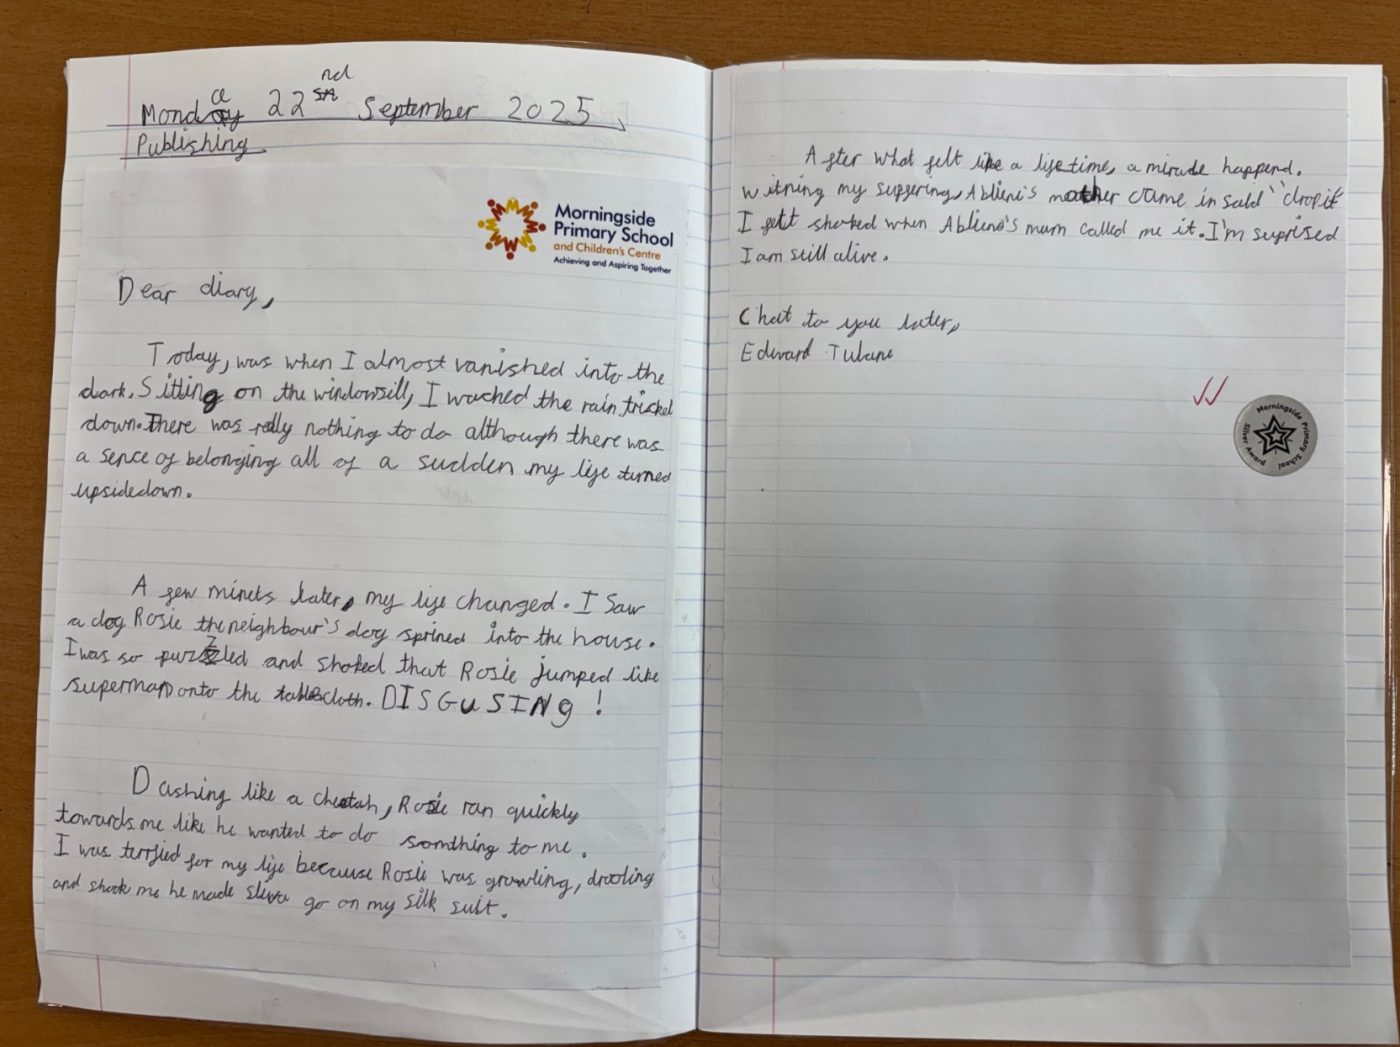 Monday 22nd September 2025
Publishing
Morningside
Primary School
and Children's Centre
Achieving and Aspiring Together
Dear diary,
Today, was when I almost vanished into the
dark. Sitting on the windowsill, I wached the rain trickel
down. There was relly nothing to do although there was
a sence of belonging all of a sudden my life turned
upsidedown.
A few minets later, my life changed. I saw
a dog Rosie the neighbour's dog sprined into the house.
I was so puzzled and shoked that Rosie jumped like
superman onto the tablecloth. DISGUSING!
Dashing like a cheetah, Rosie ran quickly
towards me like he wanted to do somthing to me.
I was terrfied for my life because Rosie was growling, drooling
and shook me he made sliva go on my silk suit.
After what felt like a lifetime, a miracle happend.
witning my suffering, Ablieni's mother came in said "drop it
I felt shoked when Abliene's mum called me it. I'm suprised
I am still alive.
Chat to you later,
Edward Tulane
Morningside Primary School
Silver Award